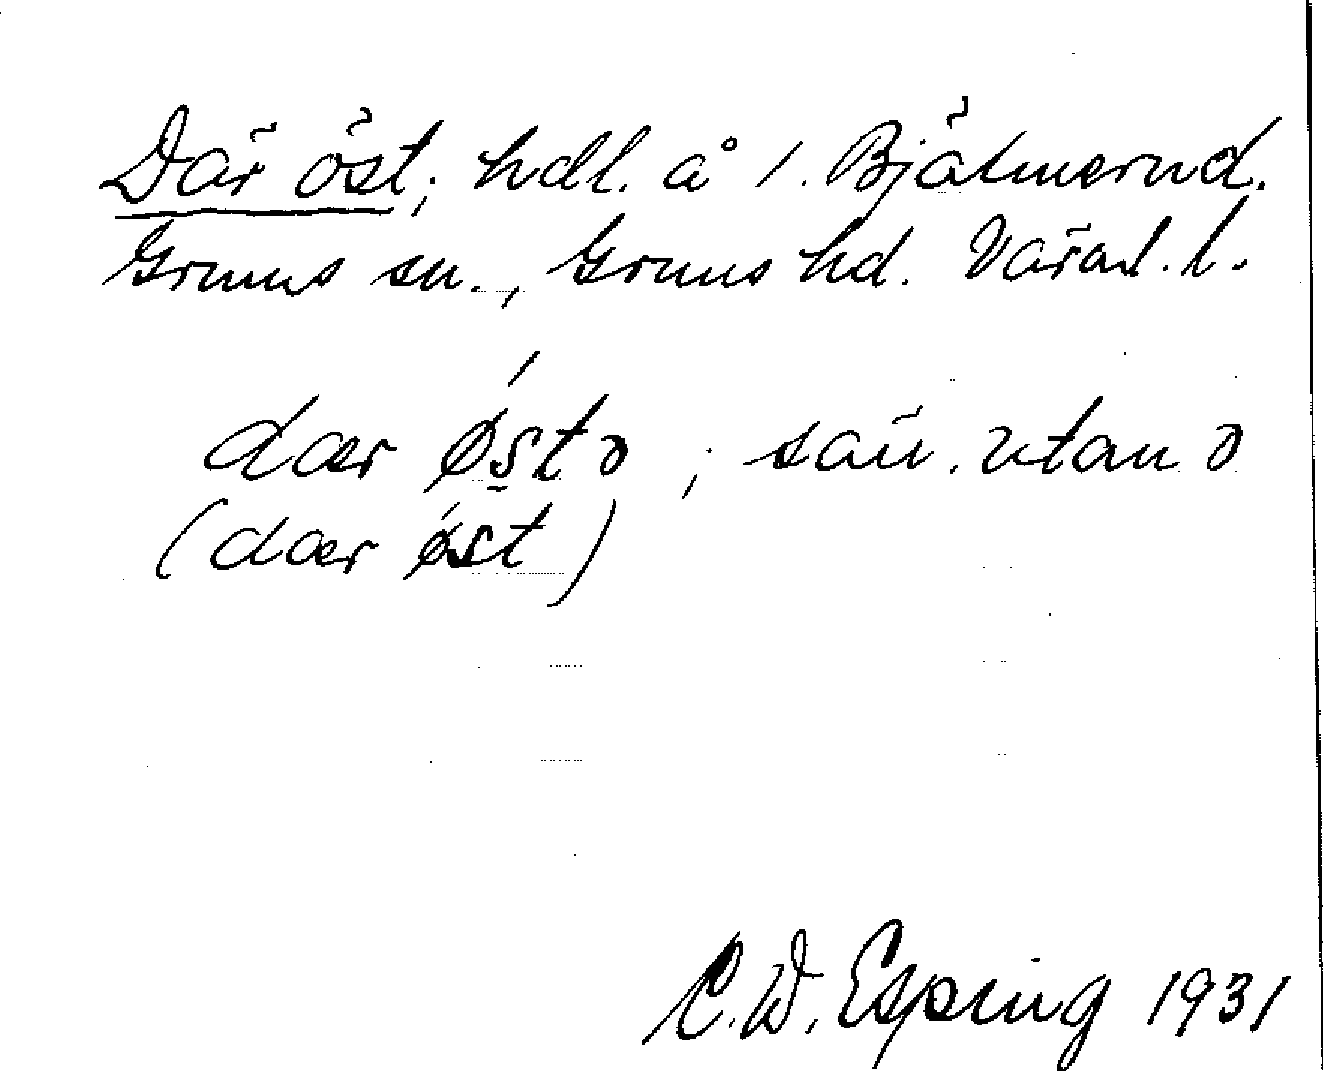 Där öst; hdl. å 1. Bjälmerud.
Grums sn., Grums hd. Värml. l.
dær østə ; säll. utan ə
(dær øst)
C.W. Esping 1931